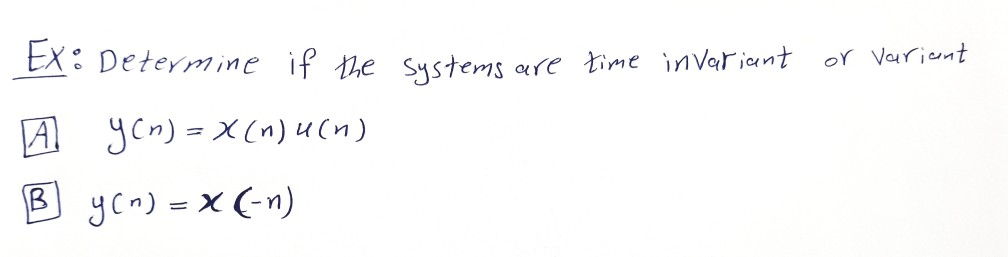 Ex: Determine if the systems are time invariant or variant
A y(n) = x(n) u(n)
B y(n) = x(-n)